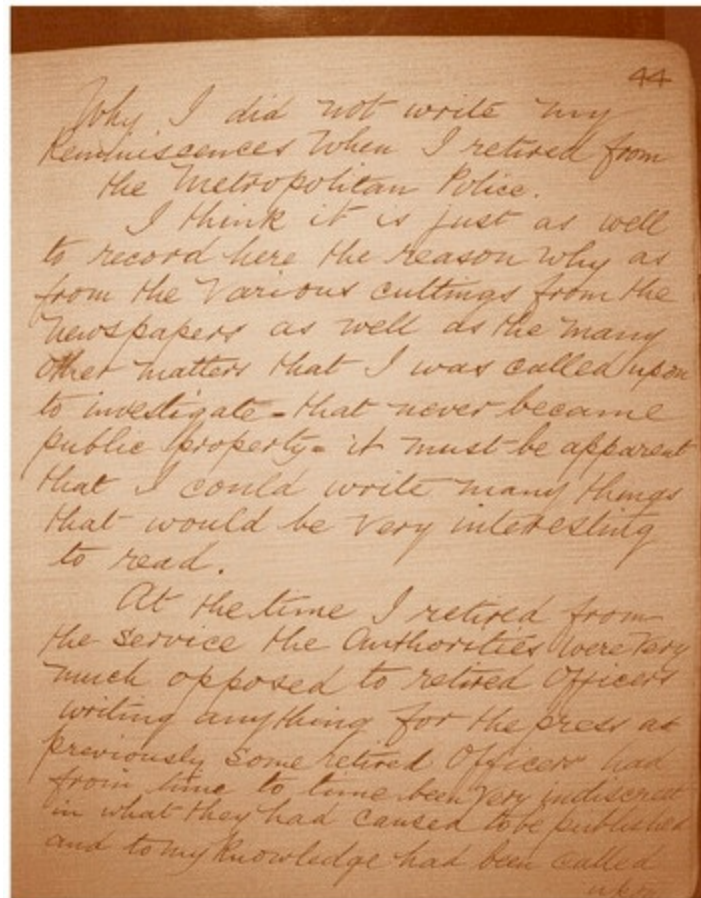 44
Why I did not write my
Reminiscences when I retired from
the Metropolitan Police.
I think it is just as well
to record here the reason why as
from the various cuttings from the
newspapers as well as the many
other matters that I was called upon
to investigate - that never became
public property - it must be apparent
that I could write many things
that would be very interesting
to read.
At the time I retired from
the service the Authorities were very
much opposed to retired Officers
writing anything for the press as
previously some retired Officers had
from time to time been very indiscreet
in what they had caused to be published
and to my knowledge had been called
upon